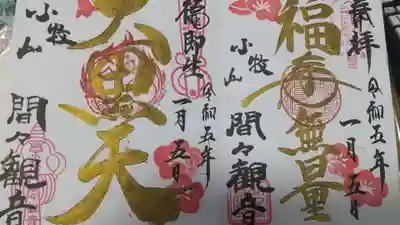 奉拝
令和五年
一月五日
福寿無量
小牧山
間々観音
福即生
令和五年
一月五日
大黒天
小牧山
間々観音